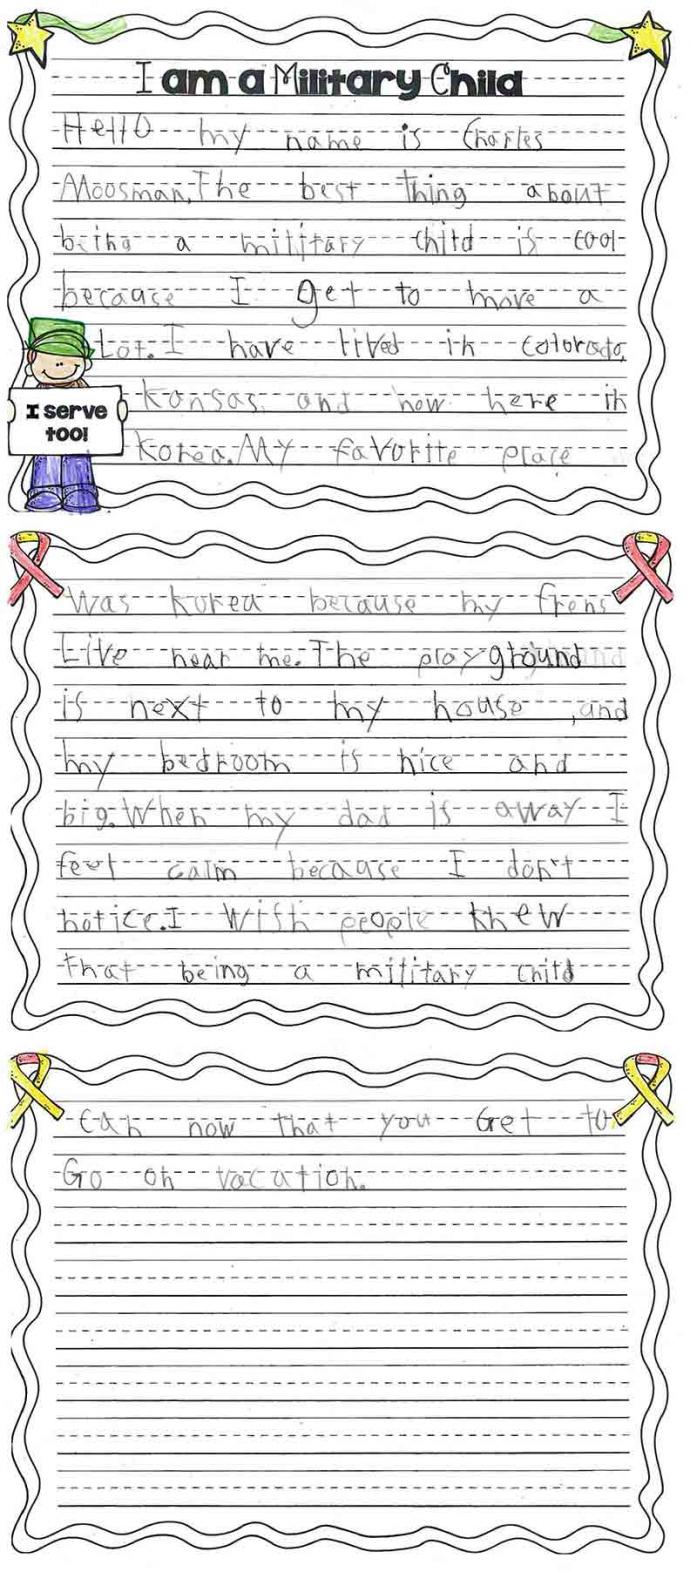 I am a Military Child
Hello my name is Charles
Moosman. The best thing about
being a military child is cool
because I get to move a
Lot. I have lived in colorado,
I serve
too!
kansas, and now here in
korea. My favorite place
Was korea because my frens
Live near me. The playground
is next to my house ,and
my bedroom is nice and
big. When my dad is away I
feel calm because I don't
notice. I wish people knew
that being a military child
can now that you Get to
Go on vacation.